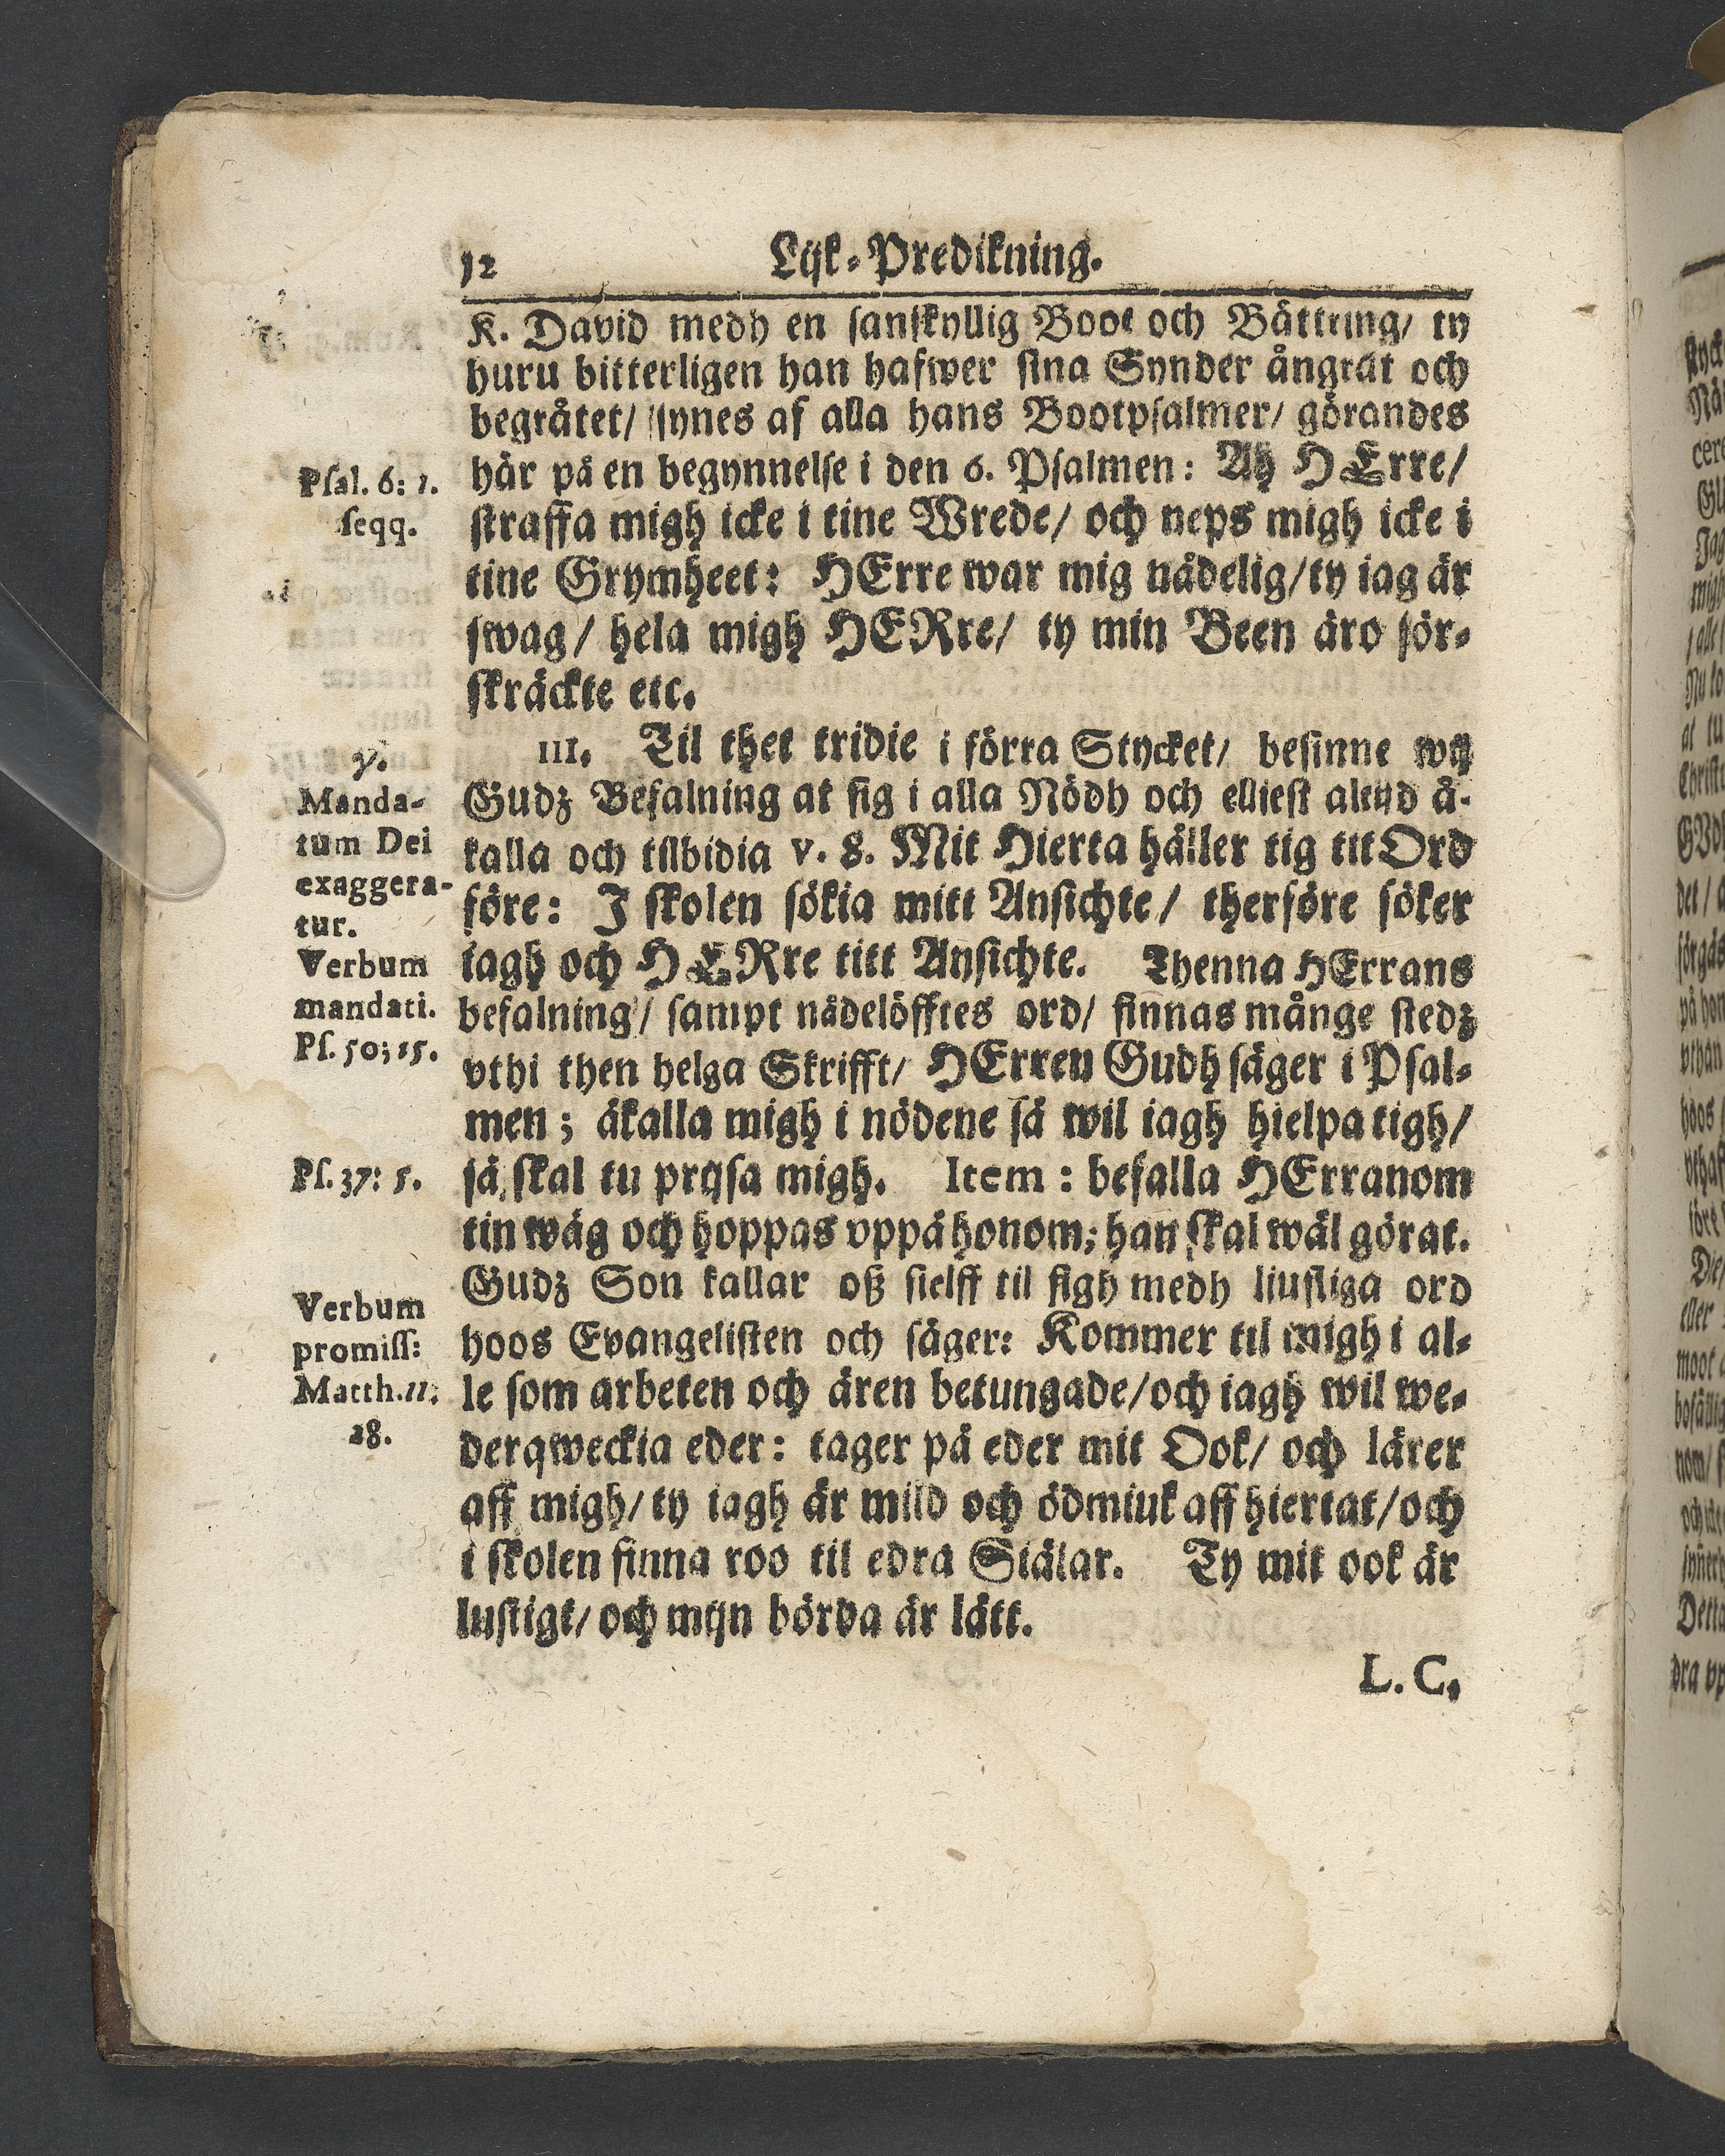 12 Lijk-Predikning.
K. David medh en sanskyllig Boot och Bättring/ ty
huru bitterligen han hafwer sina Synder ångrat och
begråtet/ synes af alla hans Bootpsalmer/ görandes
här på en begynnelse i den 6. Psalmen: Ah HErre/
straffa migh icke i tine Wrede/ och neps migh icke i
tine Grymheet: HErre war mig nådelig/ ty iag är
swag/ hela migh HERre/ ty min Been äro för-
skräckte etc.
III. Til thet tridie i förra Stycket/ besinne wij
Gudz Befalning at sig i alla Nödh och elliest altijd å-
kalla och tilbidia v. 8. Mit Hierta håller tig tit Ord
före: J skolen sökia mitt Ansichte/ therföre söker
iagh och HERre titt Ansichte. Thenna HErrans
befalning/ sampt nådelöfftes ord/ finnas månge stedz
vthi then helga Skrifft/ HErren Gudh säger i Psal-
men; åkalla migh i nödene så wil iagh hielpa tigh/
så skal tu prijsa migh. Item: befalla HErranom
tin wäg och hoppas vppå honom; han skal wäl görat.
Gudz Son kallar oß sielff til sigh medh liusliga ord
hoos Evangelisten och säger: Kommer til migh i al-
le som arbeten och ären betungade/ och iagh wil we-
derqweckia eder: tager på eder mit Ook/ och lärer
aff migh/ ty iagh är mild och ödmiuk aff hiertat/ och
i skolen finna roo til edra Siälar. Ty mit ook är
lustigt/ och mijn börda är lätt.
L. C.
Psal. 6: 1.
seqq.
γ.
Manda-
tum Dei
exaggera-
tur.
Verbum
mandati.
Ps. 50; 15.
Ps. 37: 5.
Verbum
promiss:
Matth. 11:
28.